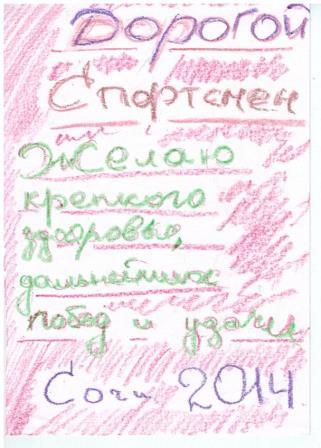 Дорогой
Спортсмен
Желаю
крепкого
здоровья,
дальнейших
побед и удачи
Сочи 2014